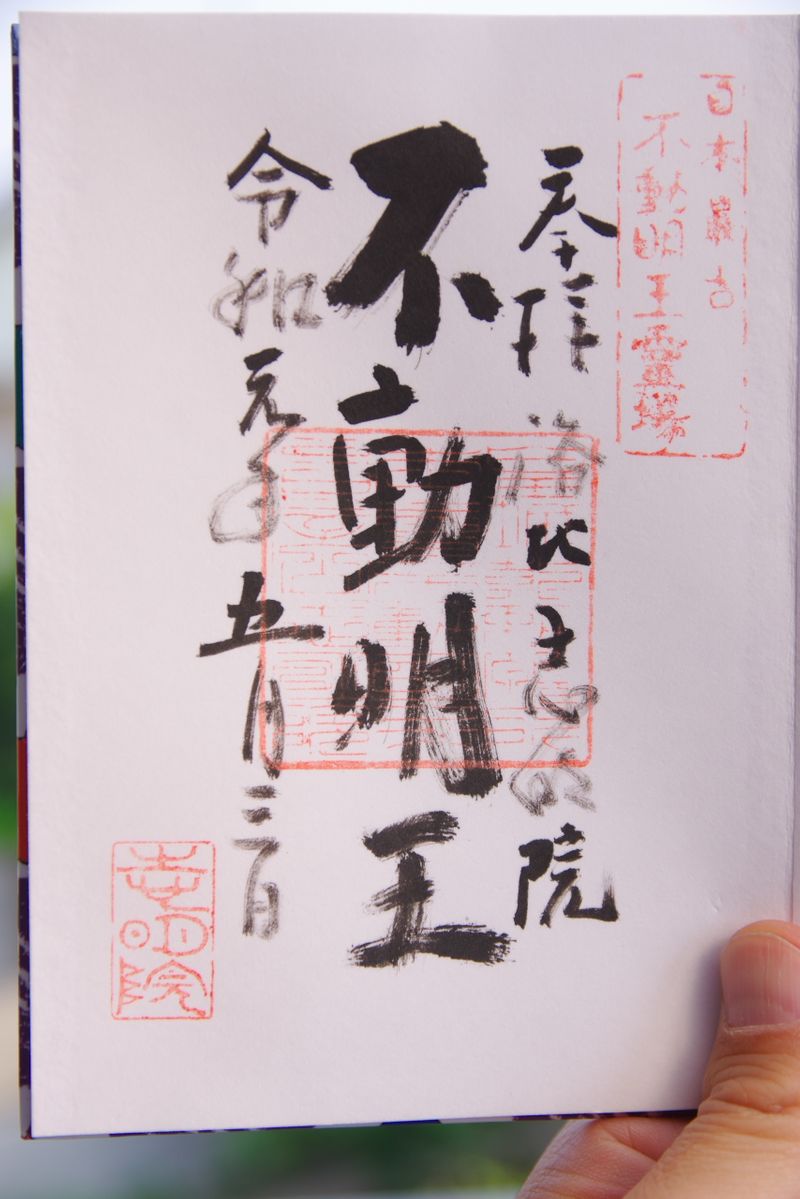 日本最古
不動明王霊場
奉拝 洛北 志明院
不動明王
令和元年五月三日
志明院